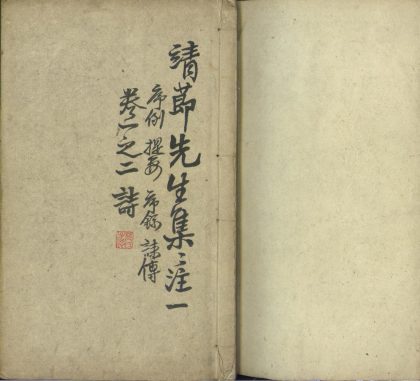 靖莭先生集〻注一
序例 提要 序録 誄傳
卷一之二 詩